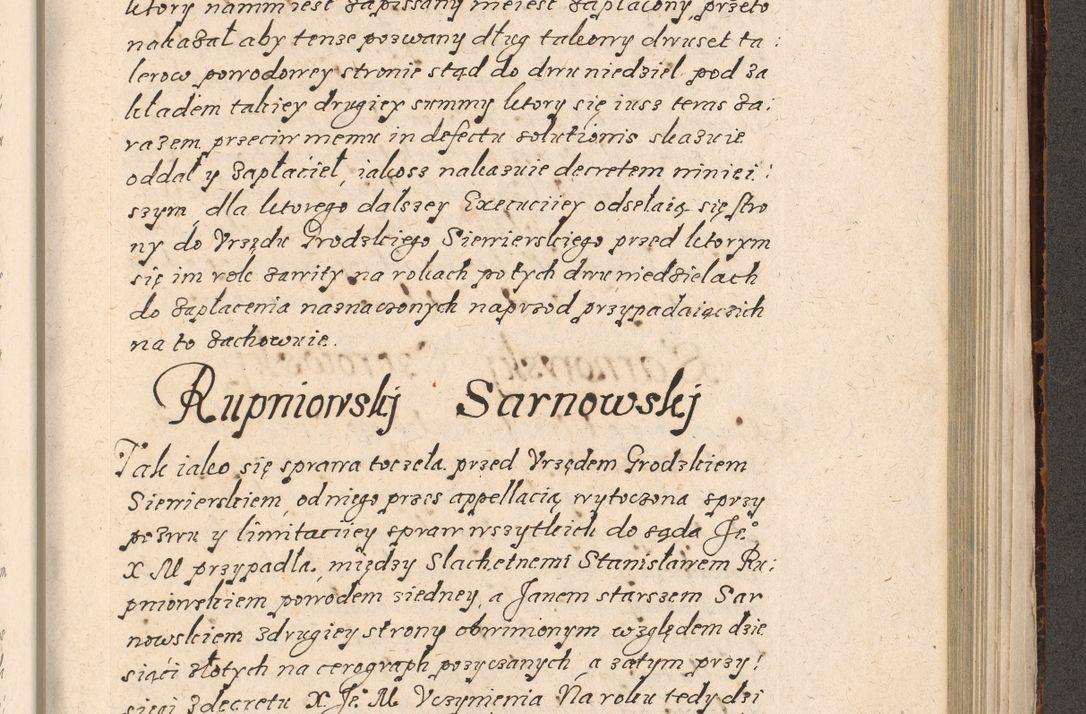 ktory namm iest zapissany nieiest zapłacony, przeto
nakazał aby tense poswany dług takowy dwuset ta :
lerow powodowey stronie stąd do dwu niedziel pod za
kładem takiey drugiey summy ktory się iusz teras za :
razem przeciw niemu in defectu solutionis skazuie
oddał y zapłacieł, iakosz nakazuie decretem niniei :
szym, dla ktorego dalszey Execuciiey odsełaią się stro
ny do Vrzędu Grodzkiego Siewierskiego przed ktorym
się im rok zawity na rokach po tych dwu niedzielach
do zapłacenia naznaczonych naprzod przypadaiączich
na to zachowuie.
Rupniowskj Sarnowskj
Tak iako się sprawa toczeła przed Vrzędem Grodzkiem
Siewierskiem, od niego przes appellacią wytoczona sprzy
pozwu y limitaciiey spraw wszytkich do sądu Je.
X M przypadla, między Slachetnemi Stanisławem Ru :
pniowskiem powodem ziedney, a Janem starszem Sar
nowskiem zdrugiey strony obwinionym względem dzie
siąci złotych na cerograph pozyczanych, a zatym przy :
sięgi zdecretu X. Je. M. Vczynienia Na roku tedy dzi